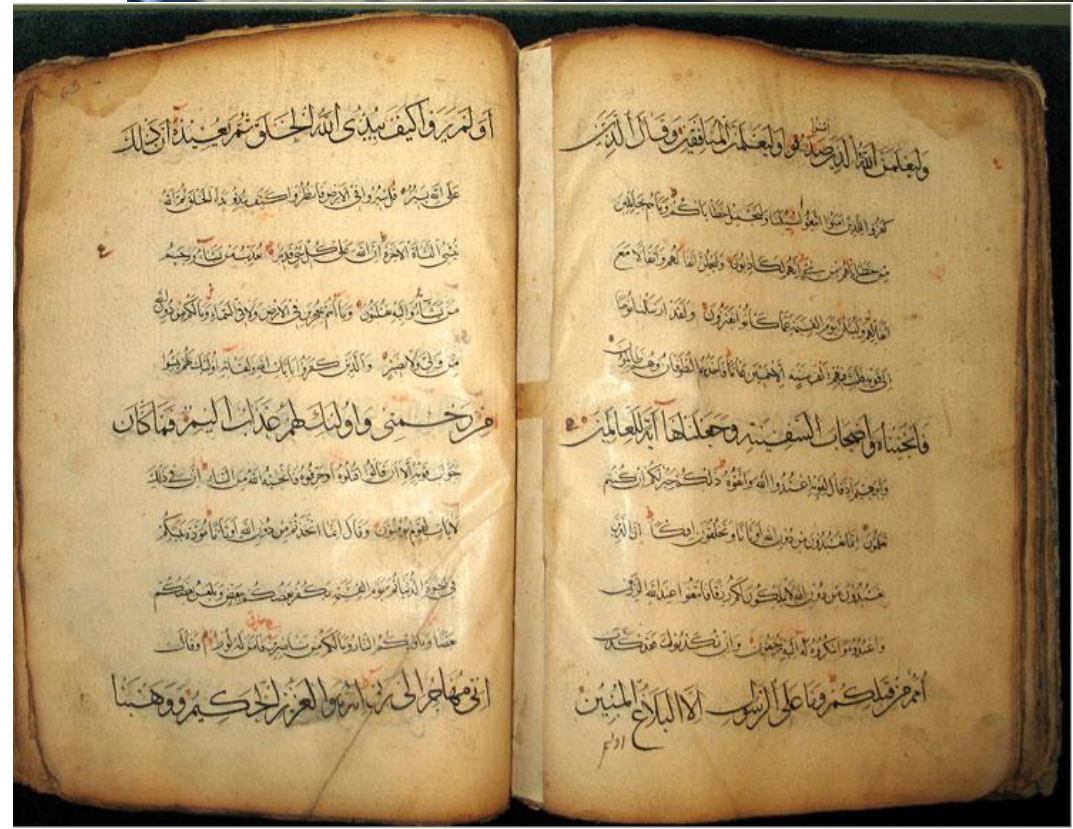 امنوا
وليعلمن الله الذين صدقوا وليعلمن المنافقين وقال الذين
كفروا للذين امنوا اتبعوا سبيلنا ولنحمل خطاياكم وما هم بحاملين
من خطاياهم من شيء انهم لكاذبون وليحملن اثقالهم واثقالا مع
اثقالهم وليسئلن يوم القيمة عما كانوا يفترون ولقد ارسلنا نوحا
الى قومه فلبث فيهم الف سنة الا خمسين عاما فاخذهم الطوفان وهم ظالمون
فانجيناه واصحاب السفينة وجعلناها آية للعالمين
وابرهيم اذ قال لقومه اعبدوا الله واتقوه ذلكم خير لكم ان كنتم
تعلمون انما تعبدون من دون الله اوثانا وتخلقون افكا ان الذين
تعبدون من دون الله لا يملكون لكم رزقا فابتغوا عند الله الرزق
واعبدوه واشكروا له اليه ترجعون وان تكذبوا فقد كذب
أمم من قبلكم وما على الرسول الا البلاغ المبين
اولم
أولم يروا كيف يبدئ الله الخلق ثم يعيده ان ذلك
على الله يسير قل سيروا في الارض فانظروا كيف بدأ الخلق ثم الله
ينشئ النشأة الاخرة ان الله على كل شيء قدير يعذب من يشاء ويرحم
من يشاء واليه تقلبون وما انتم بمعجزين في الارض ولا في السماء وما لكم من دون الله
من ولي ولا نصير والذين كفروا بايات الله ولقائه اولئك يئسوا
من رحمتي واولئك لهم عذاب اليم فما كان
جواب قومه الا ان قالوا اقتلوه او حرقوه فانجيه الله من النار ان في ذلك
لايات لقوم يؤمنون وقال انما اتخذتم من دون الله اوثانا مودة بينكم
في الحيوة الدنيا ثم يوم القيمة يكفر بعضكم ببعض ويلعن بعضكم
بعضا وماويكم النار وما لكم من ناصرين فامن له لوط وقال
اني مهاجر الى ربي انه هو العزيز الحكيم ووهبنا